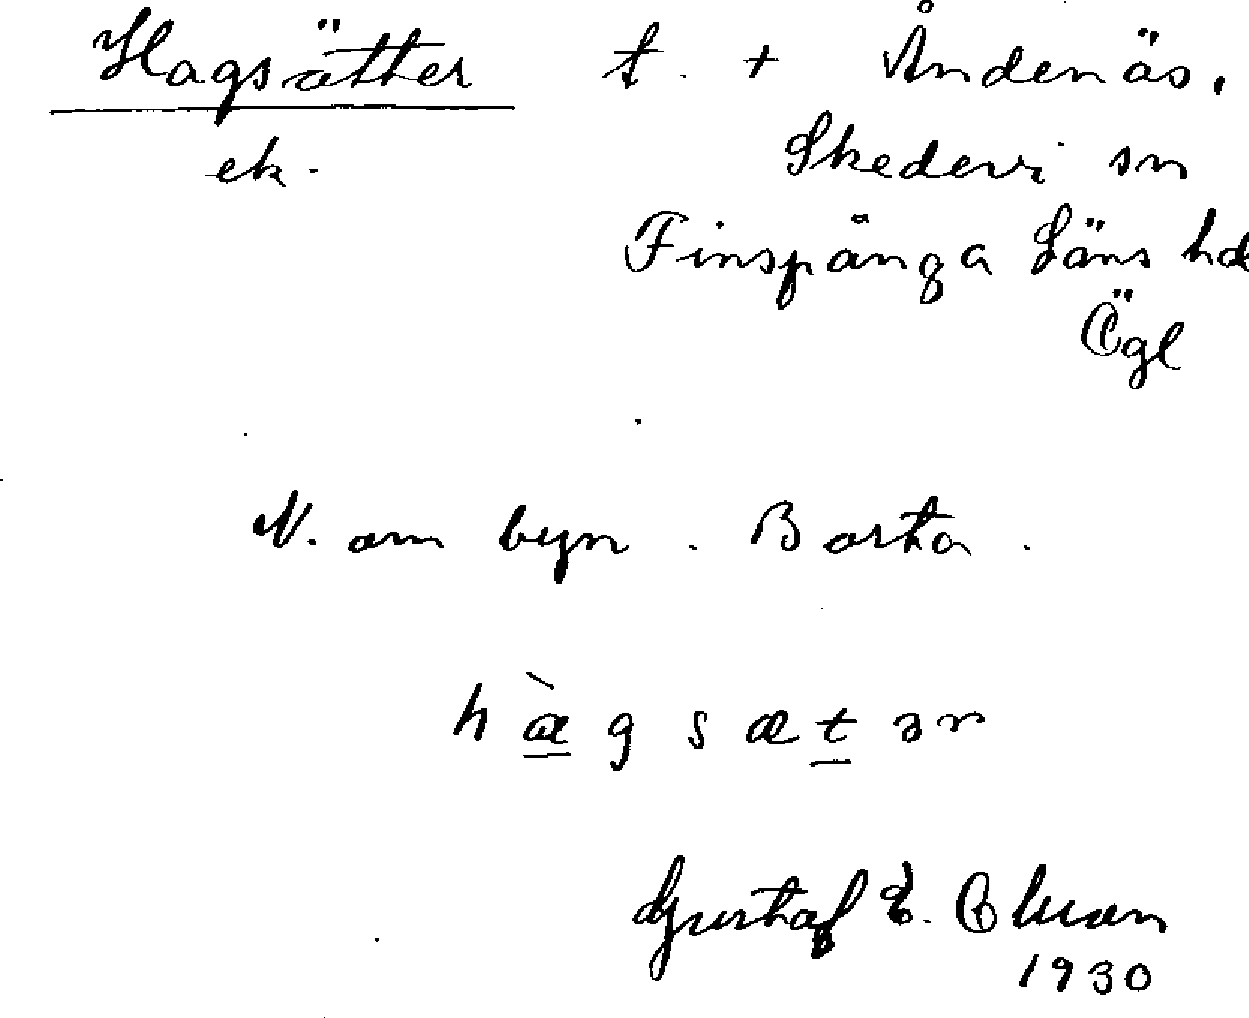 Hagsätter t. + Åndenäs,
ek. Skedevi sn
Finspånga Läns hd
Ögl
N. om byn. Borta.
h æ̀ g s æ t ə r
Gustaf E. Olsson
1930